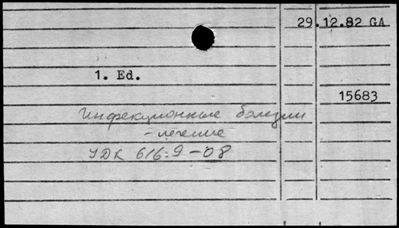 29.12.82 GA
1. Ed.
15683
Инфекционные болезни
- лечение
УДК 616.9-08